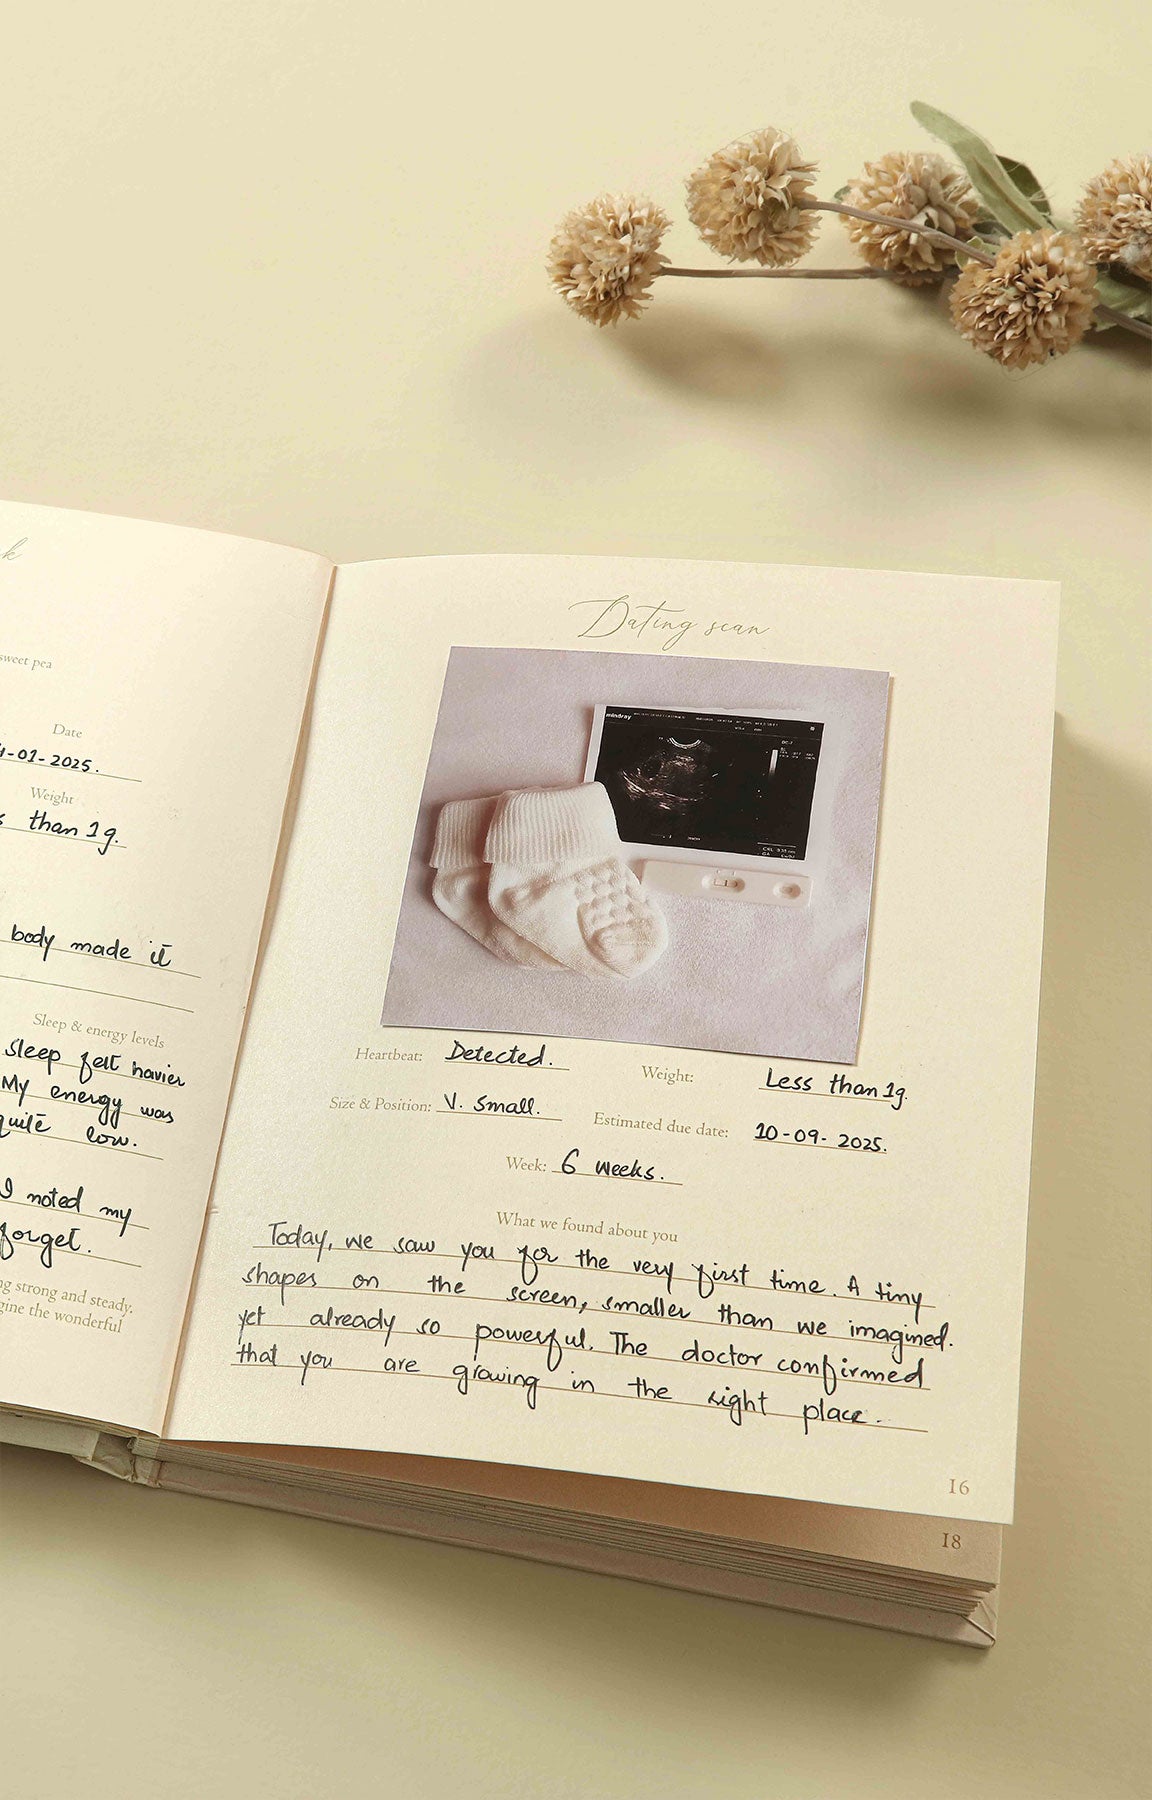 k
sweet pea
Date
-01-2025.
Weight
than 1g.
body made it
Sleep & energy levels
sleep felt havier
My energy was
quite low.
I noted my
forget.
ng strong and steady.
gine the wonderful
Dating scan
mindray
Heartbeat: Detected.
Weight: Less than 1g.
Size & Position: V. small.
Estimated due date: 10-09-2025.
Week: 6 weeks.
What we found about you
Today, we saw you for the very first time. A tiny
shapes on the screen, smaller than we imagined.
yet already so powerful. The doctor confirmed
that you are growing in the right place.
16
18